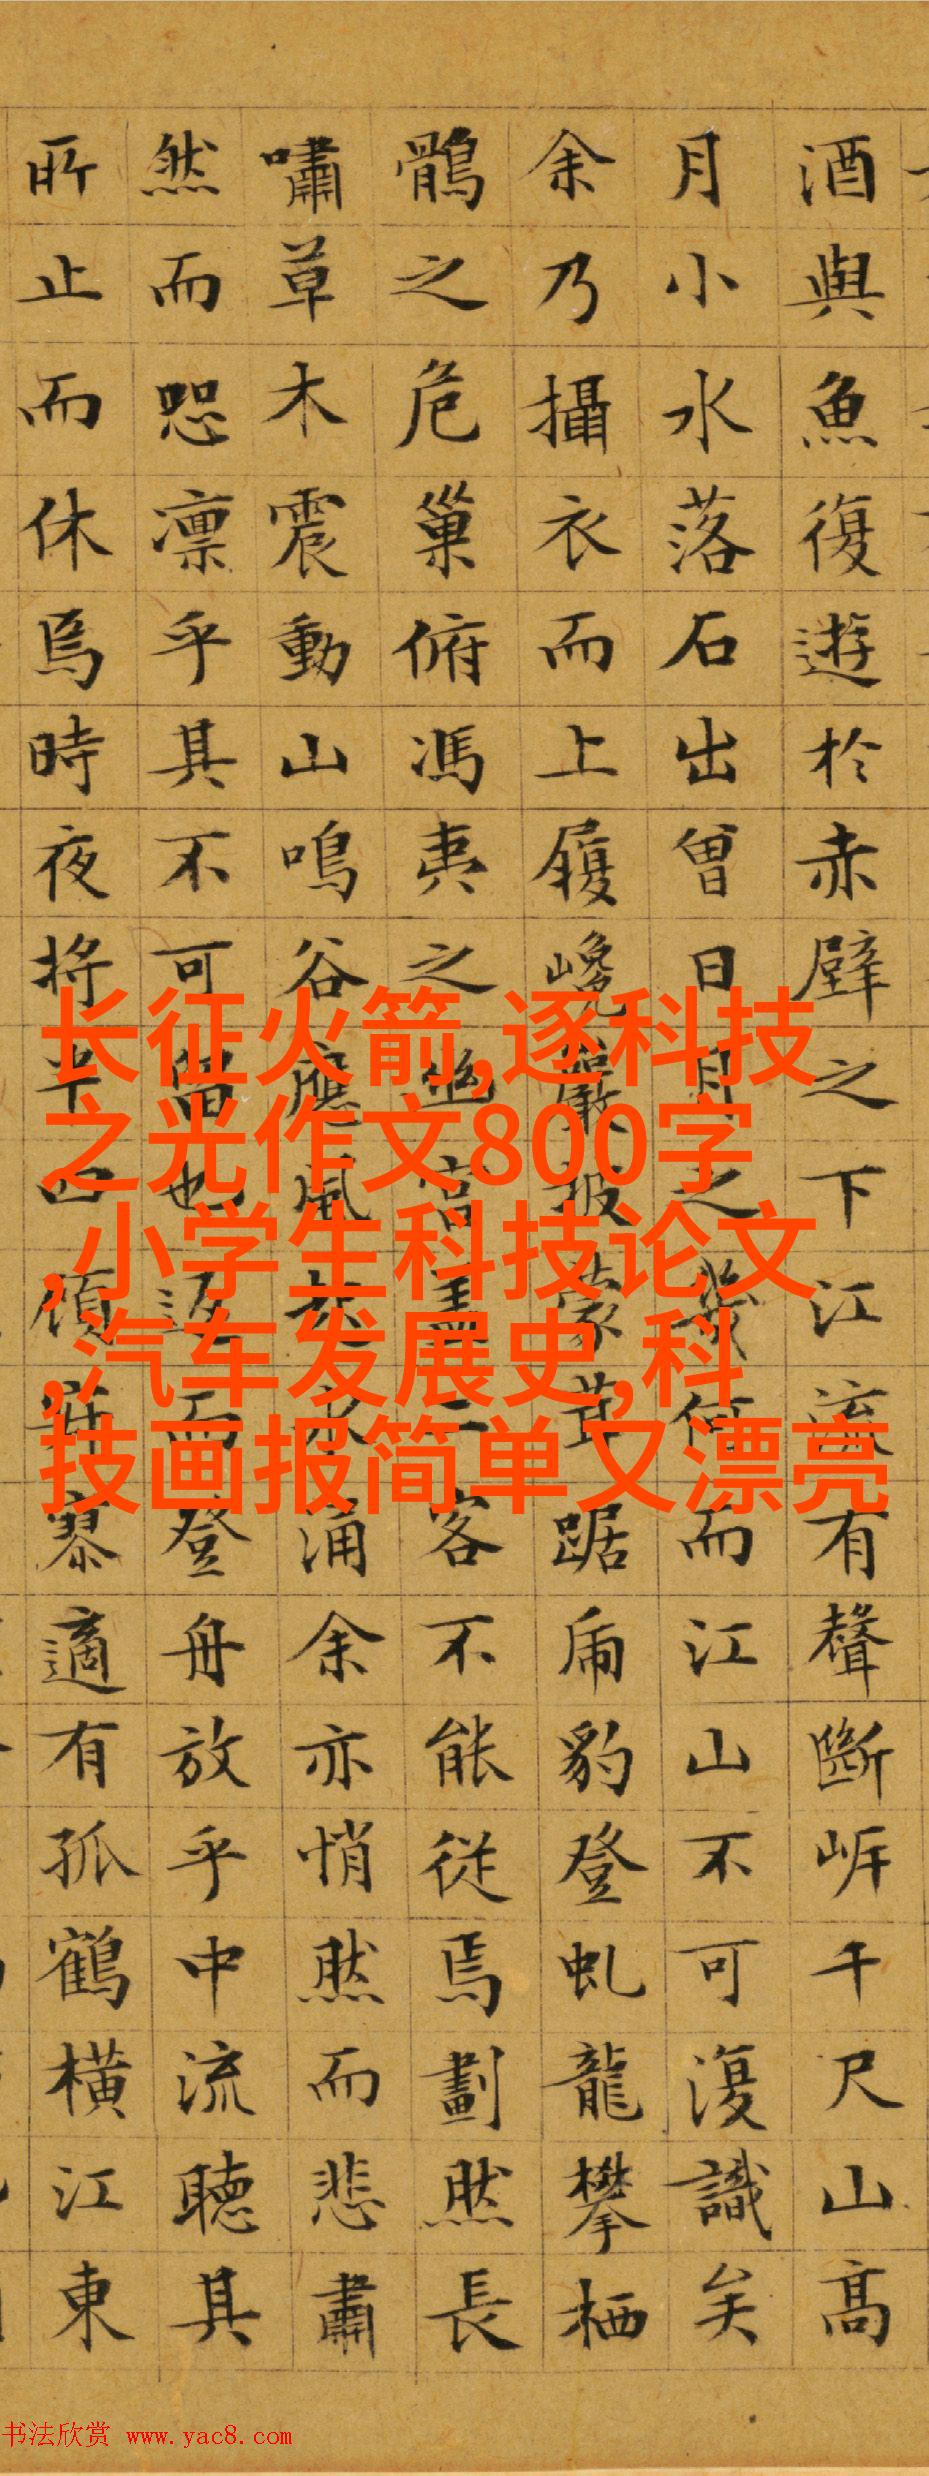 酒與魚復遊於赤壁之下江流有聲斷岸千尺山高
月小水落石出曾日月之幾何而江山不可復識矣
余乃攝衣而上履巉巖披蒙茸踞虎豹登虬龍攀栖
鶻之危巢俯馮夷之幽宮蓋二客不能從焉劃然長
嘯草木震動山鳴谷應風起水涌余亦悄然而悲肅
然而恐凛乎其不可留也返而登舟放乎中流聽其
所止而休焉時夜將半四顧寂寥適有孤鶴橫江東
长征火箭,逐科技
之光作文800字
,小学生科技论文
,汽车发展史,科
技画报简单又漂亮
书法欣赏 www.yac8.com